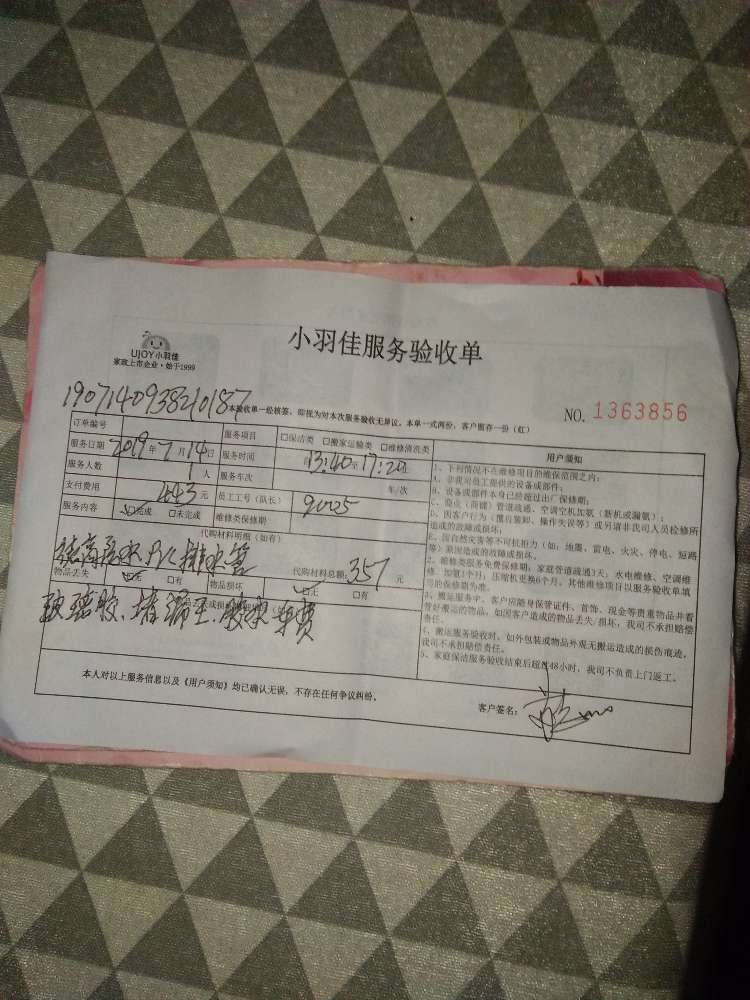 UJOY小羽佳
家政上市企业·始于1999
小羽佳服务验收单
1907140938210187
本验收单一经核签，即视为对本次服务验收无异议。本单一式两份，客户留存一份（红）
NO. 1363856
订单编号
服务项目 □保洁类 □搬家运输类 □维修清洗类
服务日期 2019年7月14日 服务时间 13:40至17:20
服务人数 1人 服务车次 车/次
支付费用 443元 员工工号（队长） 92025
服务内容 □完成 □未完成 维修类保修期:
代购材料明细（如有）
PVC排水管 代购材料总额: 357元
物品丢失 □无 □有 物品损坏 □无 □有
玻璃胶、堵漏王、胶水 车费
用户须知
1、下列情况不在维修项目的维保范围之内:
A、非我司员工提供的设备或部件;
B、设备或部件本身已经超过出厂保修期;
C、蹲点（商铺）管道疏通、空调空机加氨（新机或漏氨）;
D、因客户行为（擅自装卸、操作失误等）或另请非我司人员检修所造成的故障或损坏;
E、因自然灾害等不可抗拒力（如: 地震、雷电、火灾、停电、短路等）原因造成的故障或损坏。
2、维修类服务免费保修期: 家庭管道疏通3天; 水电维修、空调维修、加氨1个月; 压缩机更换6个月。其他维修项目以服务验收单填写的保修期为准。
3、搬运服务中，客户应随身保管证件、首饰、现金等贵重物品并看管好搬运的物品，如因客户造成的物品丢失/损坏，我司不承担赔偿责任。
4、搬运服务验收时，如外包装或物品外观无搬运造成的损伤痕迹，我司不承担赔偿责任。
5、家庭保洁服务验收结束后超过48小时，我司不负责上门返工。
本人对以上服务信息以及《用户须知》均已确认无误，不存在任何争议纠纷。
客户签名: